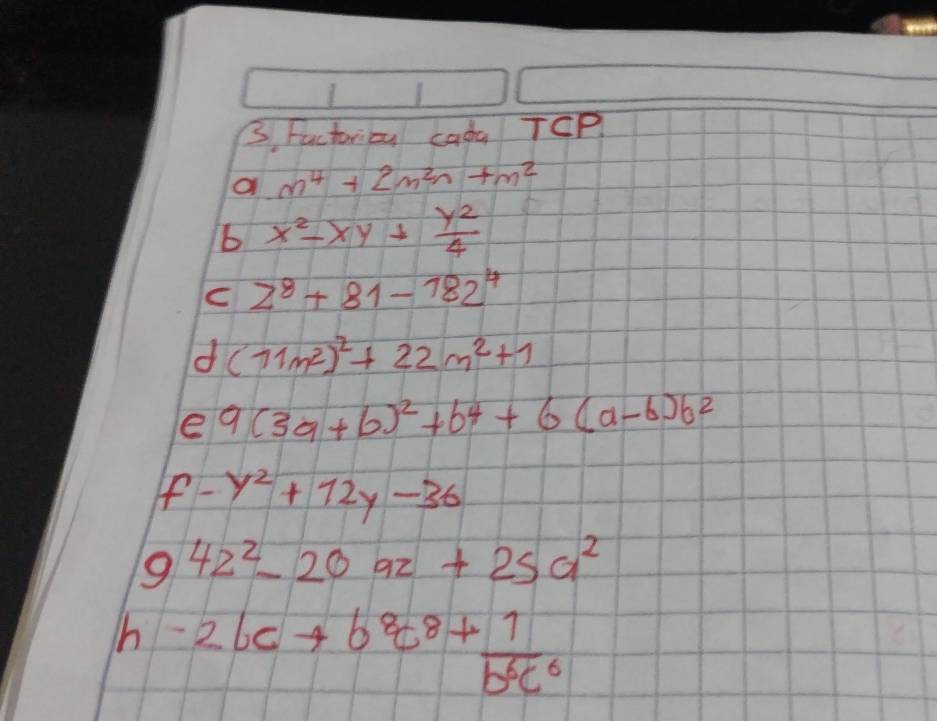 3. Factoriza cada TCP
a m⁴ + 2m²n + m²
b x² - xy + y²/4
c z⁸ + 81 - 18z⁴
d (11m²)² + 22m² + 1
e 9(3a + b)² + b⁴ + 6(a - b)b²
f - y² + 12y - 36
g 4z² - 20 az + 25a²
h - 2bc + b⁸c⁸ + 1/b⁶c⁶